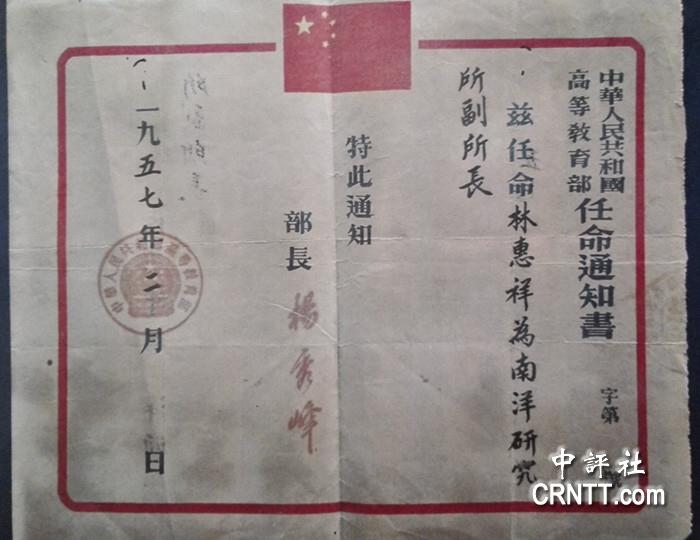 中華人民共和國
高等教育部
任命通知書
字第 號
兹任命林惠祥為南洋研究
所副所長
特此通知
部長 楊秀峰
一九五七年二月 日
中評社
CRNTT.com